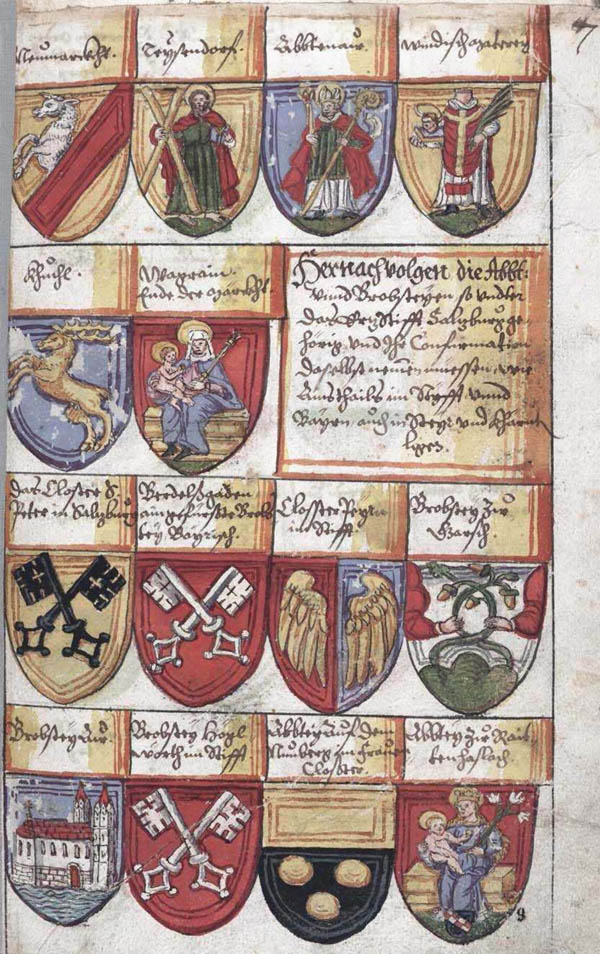 7
Neumarckht.
Teysendorf.
Abbtenaw.
Windischmatrey
Khuchl.
Wagrain.
Ende der Märckht
Hernach volgen die Abbt:
vnnd Brobsteyen so vnder
das Erzstifft Salzburg ge=
hörig vnd Ihr Confirmation
daselbst nemen muessen, wie
ains thails im Stifft vnnd
Bayrn auch in Steyr vnd Kharnt
ligen.
das Closter S.
Peter in Salzburg
Berchtlsgaden
ain gefürste Brob
stey Bayrisch.
Closter
im Stifft.
Brobstey zů
Garsch.
Brobstey Aw.
Brobstey Högl
worth im Stifft
Abbtey auf dem
Nunberg ein frauen
Closter.
Abbtey zů Rait
tenhaslach.
9